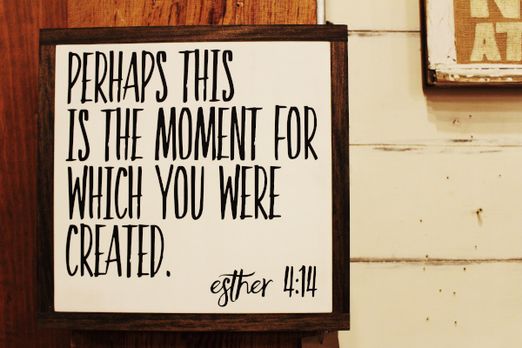 PERHAPS THIS
IS THE MOMENT FOR
WHICH YOU WERE
CREATED.
esther 4:14
AT